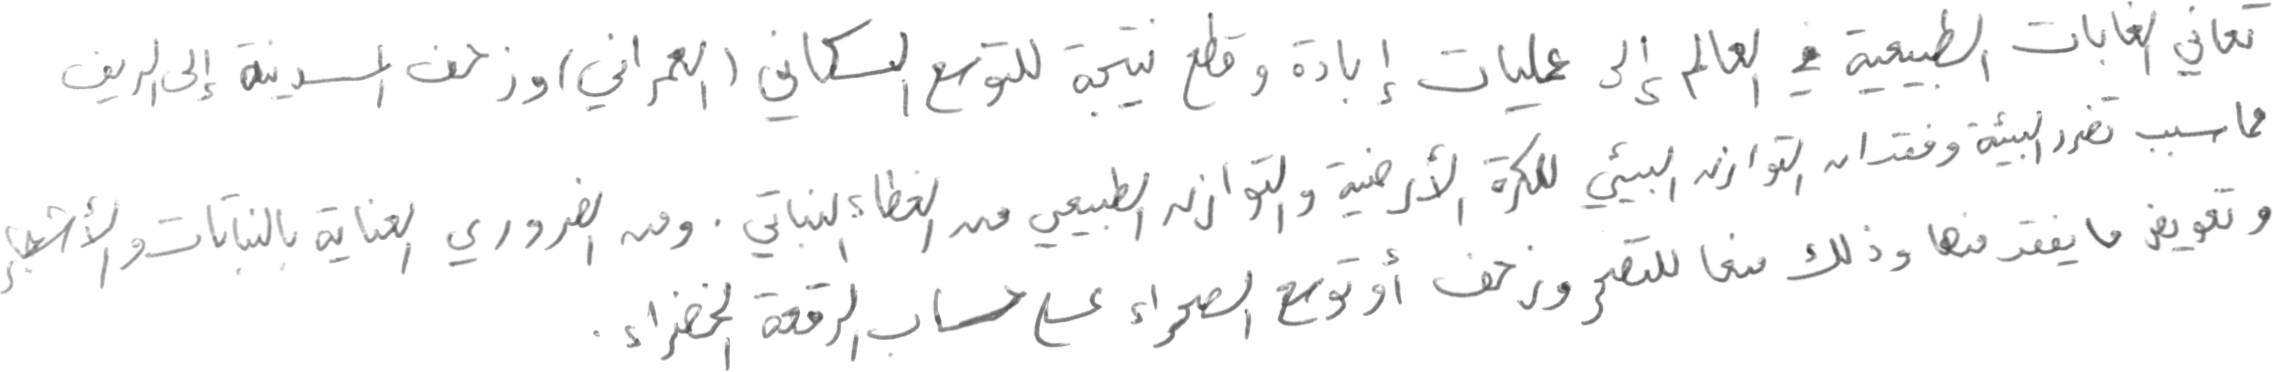 تعاني الغابات الطبيعية في العالم إلى عمليات إبادة وقطع نتيجة للتوسع السكاني (العمراني) وزحف المدينة إلى الريف
مما سبب تضرر البيئة وفقدان التوازن البيئي للكرة الأرضية والتوازن الطبيعي من الغطاء النباتي . ومن الضروري العناية بالنباتات والأشجار
وتعويض ما يفقد منها وذلك منعا للتصحر وزحف أو توسع الصحراء على حساب الرقعة الخضراء .